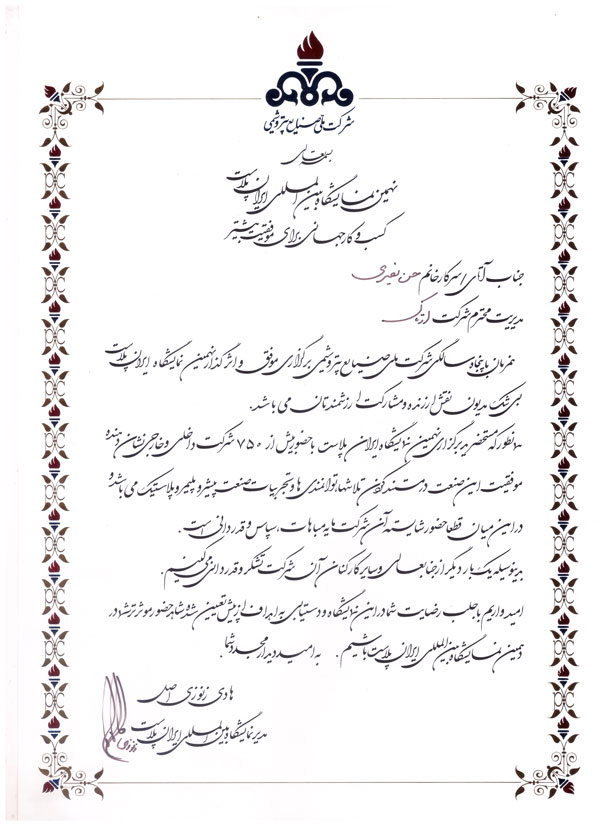 شرکت ملی صنایع پتروشیمی
بسمه تعالی
نهمین نمایشگاه بین المللی ایران پلاست
کسب و کار جهانی برای موفقیت بیشتر
جناب آقای / سرکار خانم حسن نصیری
مدیریت محترم شرکت
همزمان با پنجاه سالگی شرکت ملی صنایع پتروشیمی برگزاری موفق و اثرگذار نهمین نمایشگاه ایران پلاست
بی شک مدیون نقش ارزنده و مشارکت ارزشمندتان می باشد.
همانطور که مستحضرید برگزاری نهمین نمایشگاه ایران پلاست با حضور بیش از ۷۵۰ شرکت داخلی و خارجی نشان دهنده
موفقیت این صنعت در مستند کردن تلاشها، توانمندی ها و تجربیات صنعت پیشرو پلیمر و پلاستیک می باشد و
در این میان قطعا حضور شایسته آن شرکت مایه مباهات، سپاس و قدردانی است.
بدینوسیله یک بار دیگر از جنابعالی و سایر کارکنان آن شرکت تشکر و قدردانی می کنیم.
امیدواریم با جلب رضایت شما در این نمایشگاه و دستیابی به اهداف از پیش تعیین شده شاهد حضور موثرتر شما در
دهمین نمایشگاه بین المللی ایران پلاست باشیم. به امید دیدار مجدد شما.
هادی زنوزی اصل
مدیر نمایشگاه بین المللی ایران پلاست